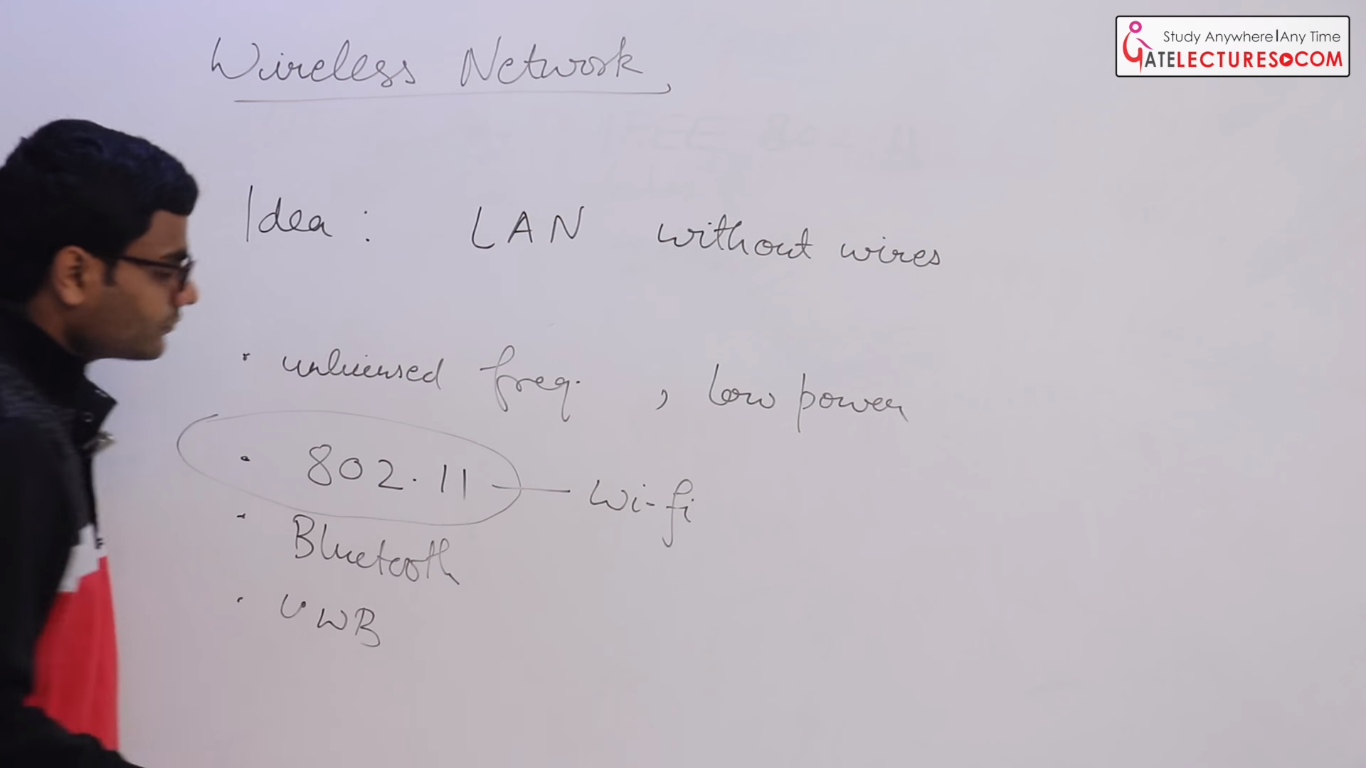 Study Anywhere|Any Time
GATELECTURES.COM
Wireless Network
Idea : LAN without wires
· unlicensed freq. , low power
· 802.11 — Wi-fi
· Bluetooth
· UWB